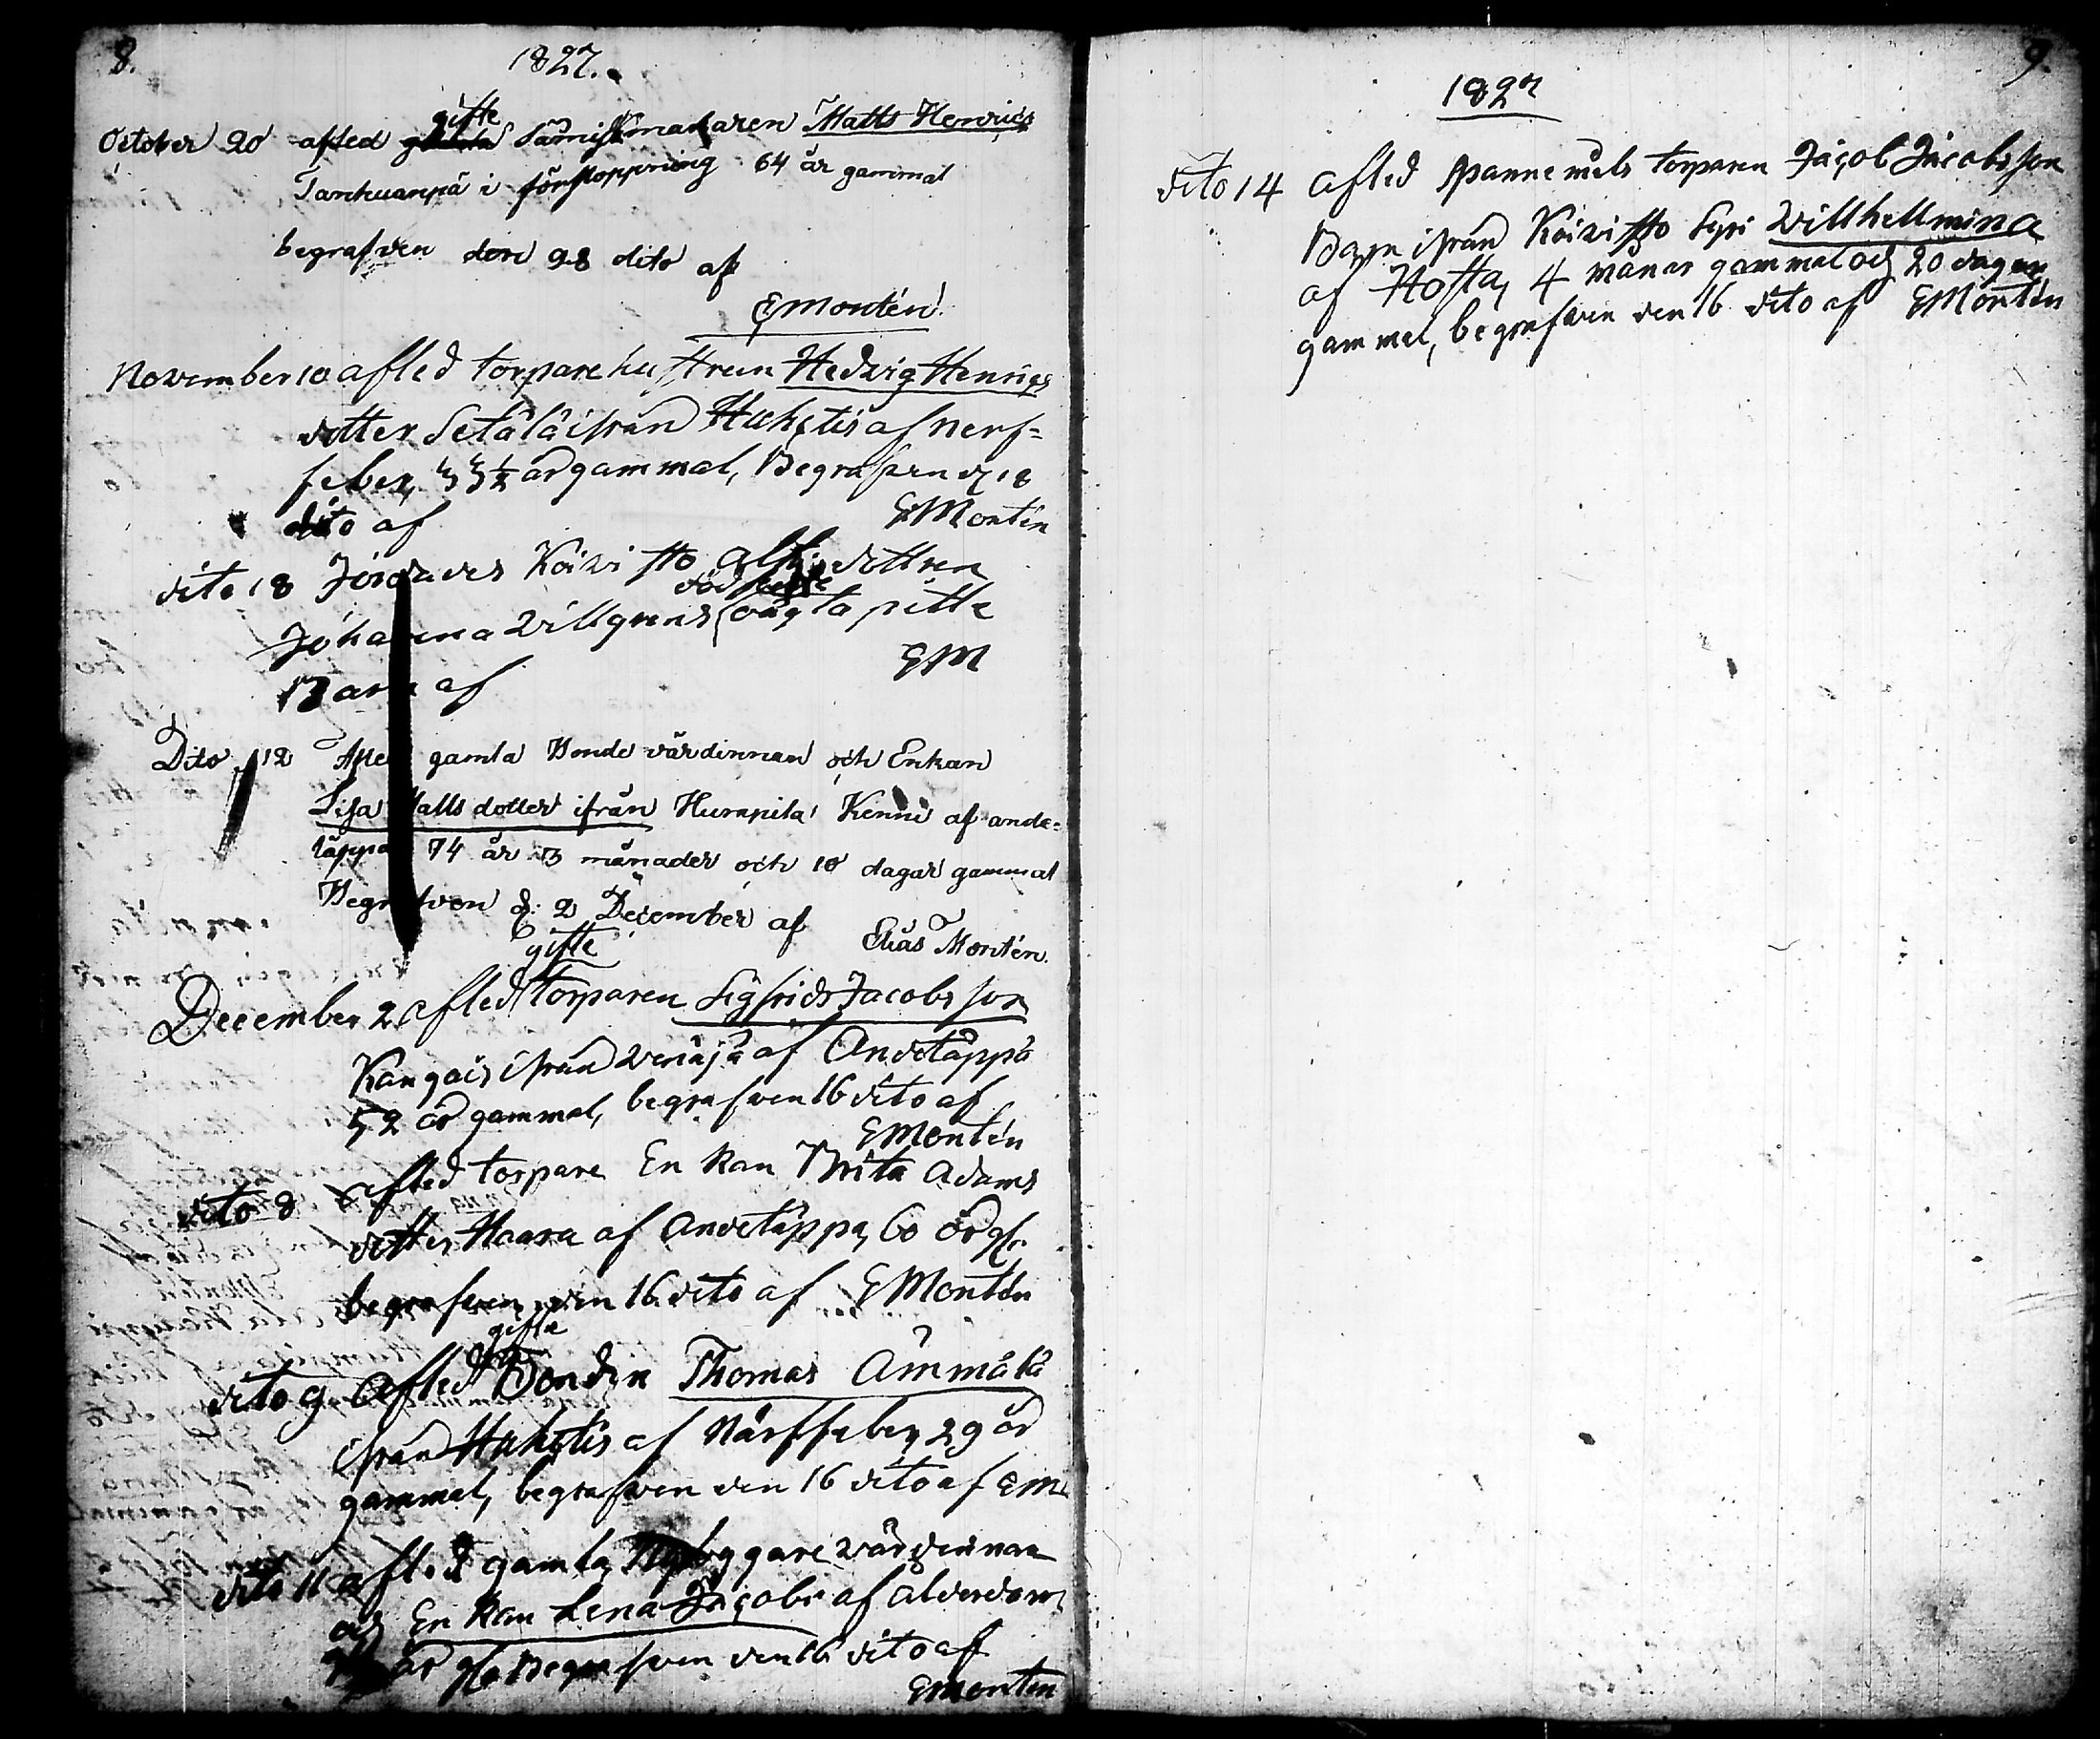 8.
1827.
October 20 afled gifte makaren Matts Henrics
Tarkuanpä i förstoppning 64 år gammal
begrafven den 28 dito af
EMontén
November 10 afled torpare hustrun Hedvig Henrics
dotter Setälä ifrån Huhtis af nerf-
feber, 33½ år gammal, Begrafven d. 18
dito af EMontén
dito 18 Jordades Koivisto dottren
Johanna Villgrens död oägta pitte
Barn af EM
Dito 12 Afled gamla Bonde värdinnan och Enkan
Lisa Matts dotter ifrån Humpila Kenni af ande-
täppa 74 år 3 månader och 10 dagar gammal
Begrafven d: 2 December af Elias Montén.
gifte
December 2 afled torparen Sigfrids Jacobs son
Kangais ifrån Venäjä af Andetäppa
52 år gammal, begrafven 16 dito af
EMontén
dito 8 afled torpare Enkan Brita Adams
dotter Haara af andetäppa, 60 år gl.
begrafven den 16 dito af EMontén
gifte
dito 9 Afled Bonden Thomas Ämmälä
ifrån Huhtis af Närffeber, 29 år
gammal, begrafven den 16 dito af EM
dito 11 afled gamla Nybyggare värdinnan
och Enkan Lena Jacobs af ålderdom
år gl. Begrafven den 16 dito af
EMontén
9.
1827
dito 14 afled spannemåls torparen Jacob Jacobsson
Barn ifrån Koivisto Sipi Willhellmina
af Hosta, 4 månar gammal och 20 dagar
gammal, begrafven den 16 dito af EMontén